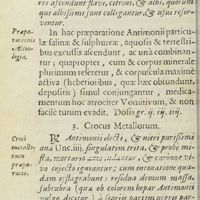 res ascendunt flavi, citrini, & albi, quorum
qui albissimi sunt colligantur, & usui reser-
ventur.
Præpa-
rationis
Ætio-
logia.
In hac præparatione Antimonii particu-
læ salinæ & sulphureæ, aquosis & terrestri-
bus excussis ascendunt, ac unà combinan-
tur; quapropter, cum & corpus minerale
plurimum referunt, & corpuscula maximè
activa (hebetioribus, quæ hæc obtundunt,
depositis) simul conjungantur, medica-
mentum hoc atrociter Vomitivum, & non
facile tutum evadit. Dosis gr. ij. iij. iiij.
3. Crocus Metallorum.
Croci
metallo-
rum
præpa-
ratio.
℞ Antimonii electi, & nitri purissimi
ana Unc. iiij. singulatim trita, & probè mi-
sta, mortario indantur, & carbone vi-
vo injecto igniantur; cum notationem quan-
dam residua denum massa,
subrubra (quæ ob colorem hepar Antimonii